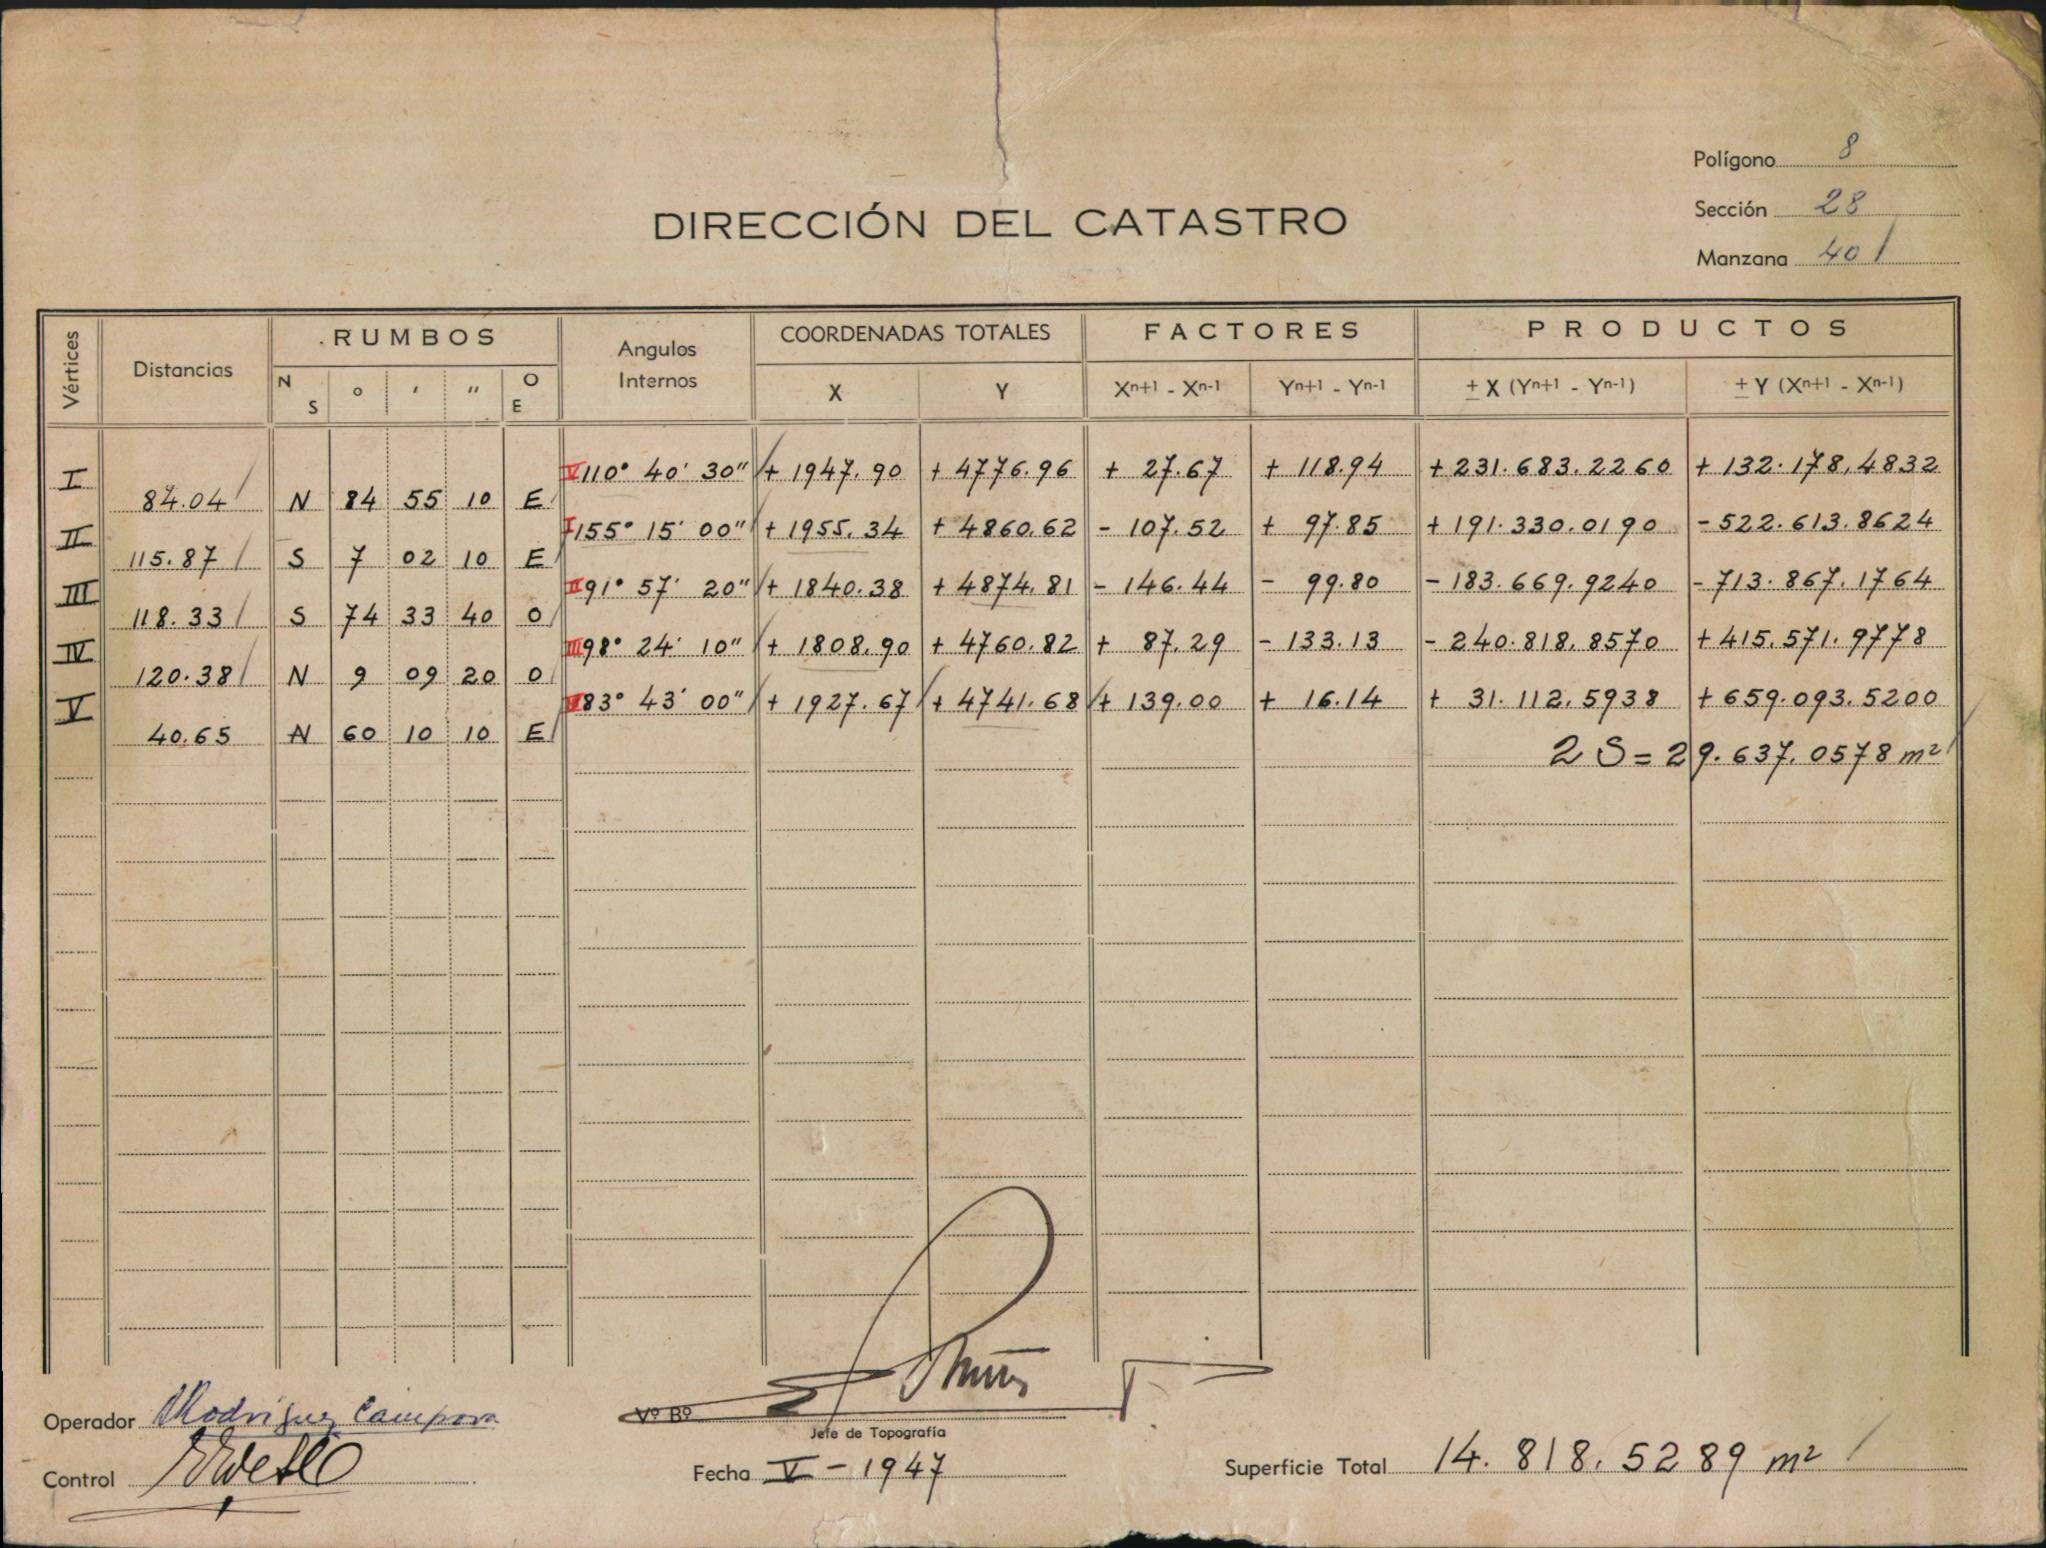 Polígono 8
Sección 28
Manzana 40
DIRECCIÓN DEL CATASTRO
Vértices Distancias RUMBOS Angulos Internos COORDENADAS TOTALES FACTORES PRODUCTOS
N S ° ′ ″ O E X Y Xn+1 - Xn-1 Yn+1 - Yn-1 ± X (Yn+1 - Yn-1) ± Y (Xn+1 - Xn-1)
I V 110° 40′ 30″ + 1947.90 + 4776.96 + 27.67 + 118.94 + 231.683.2260 + 132.178,4832
84.04 N 84 55 10 E
II I 155° 15′ 00″ + 1955.34 + 4860.62 - 107.52 + 97.85 + 191.330.0190 - 522.613.8624
115.87 S 7 02 10 E
III II 91° 57′ 20″ + 1840.38 + 4874.81 - 146.44 - 99.80 - 183.669.9240 - 713.867.1764
118.33 S 74 33 40 O
IV III 98° 24′ 10″ + 1808.90 + 4760.82 + 87.29 - 133.13 - 240.818.8570 + 415.571.9778
120.38 N 9 09 20 O
V 83° 43′ 00″ + 1927.67 + 4741.68 + 139.00 + 16.14 + 31.112.5938 + 659.093.5200
40.65 N 60 10 10 E
2 S = 29.637.0578 m²
Operador Rodriguez Campora
Vº Bº
Jefe de Topografía
Control
Fecha V - 1947
Superficie Total 14.818.5289 m²